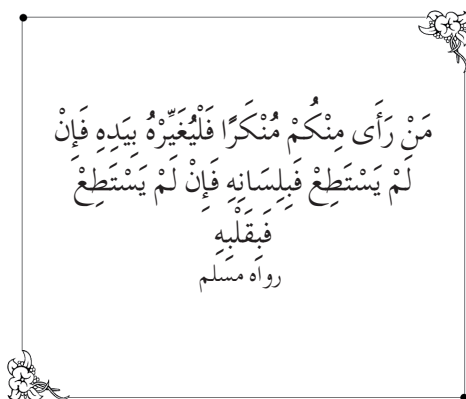 مَنْ رَأَى مِنْكُمْ مُنْكَرًا فَلْيُغَيِّرْهُ بِيَدِهِ فَإِنْ
لَمْ يَسْتَطِعْ فَبِلِسَانِهِ فَإِنْ لَمْ يَسْتَطِعْ
فَبِقَلْبِهِ
رواه مسلم